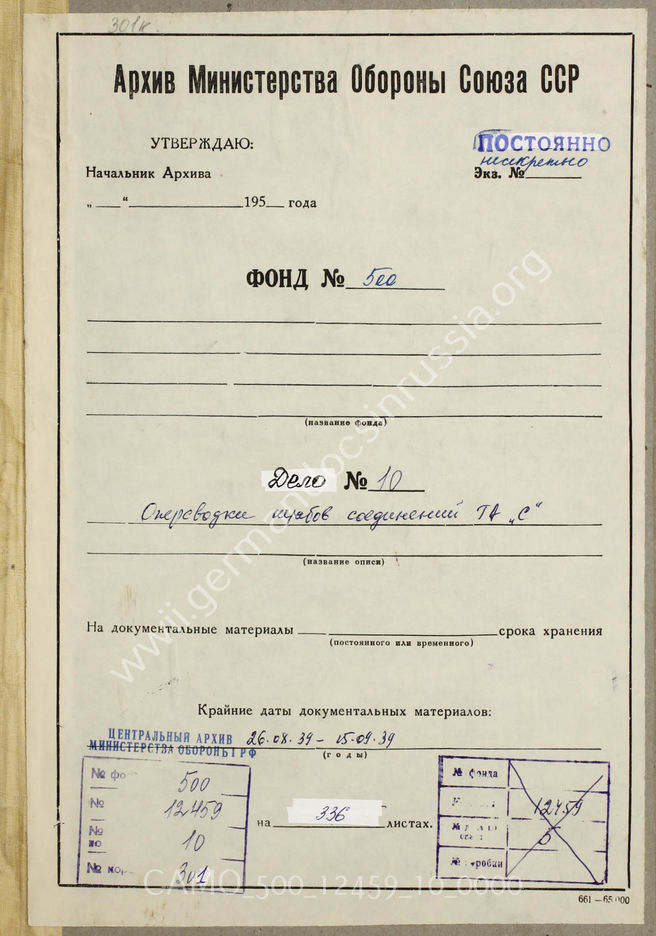 301к.
Архив Министерства Обороны Союза ССР
УТВЕРЖДАЮ:
ПОСТОЯННО
несекретно
Начальник Архива
Экз. №
„ “ 195 года
ФОНД № 500
(название фонда)
Дело № 10
Оперсводки штабов соединений ТА „С“
(название описи)
На документальные материалы срока хранения
(постоянного или временного)
Крайние даты документальных материалов:
ЦЕНТРАЛЬНЫЙ АРХИВ
МИНИСТЕРСТВА ОБОРОНЫ РФ
26.08.39 – 15.09.39
(годы)
№ фо 500
№ 12459
№ 10
по
№ кор. 301
на 336 листах.
№ фонда
12459
5
САМО_500_12459_10_0000
661—65 000
www.germandocsinrussia.org